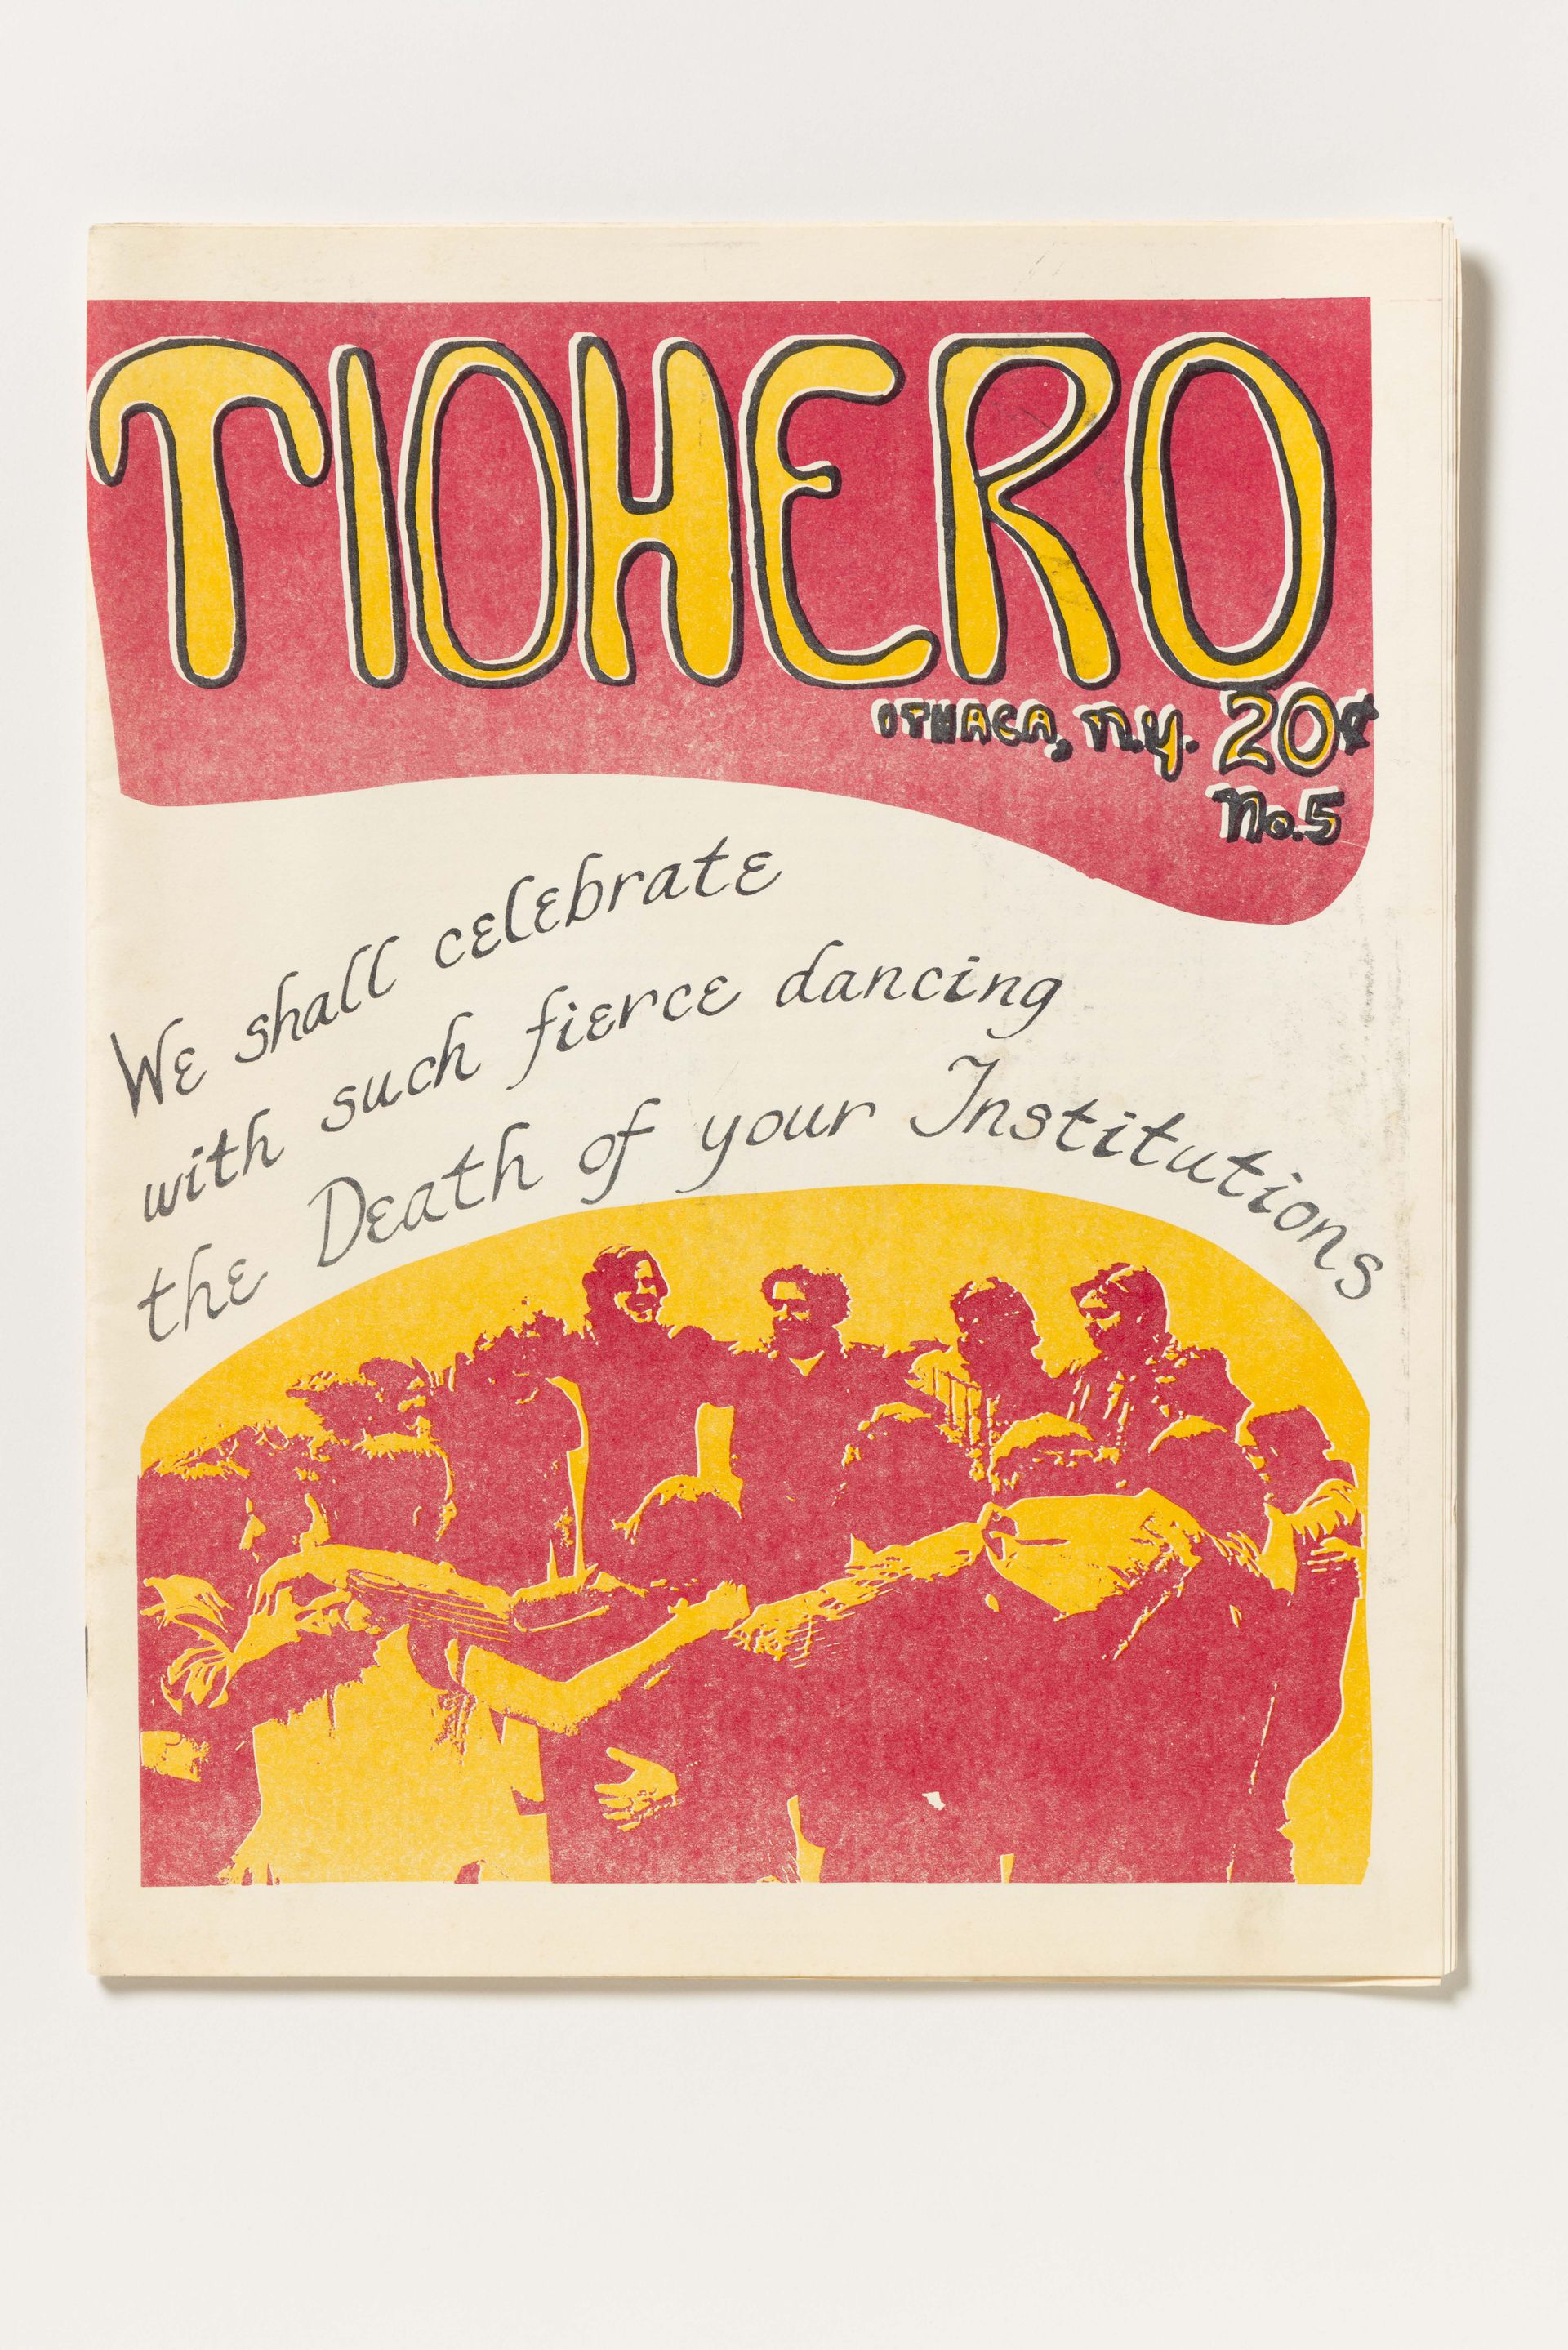 TIOHERO
ITHACA, N.Y. 20¢
No.5
We shall celebrate
with such fierce dancing
the Death of your Institutions